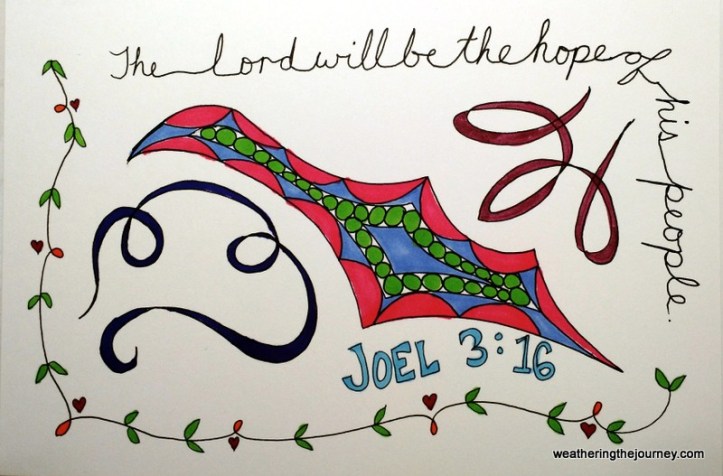 The Lord will be the hope of his people.
JOEL 3:16
weatheringthejourney.com